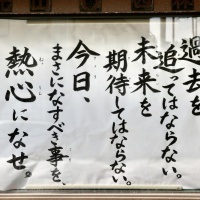 過去を
追ってはならない。
未来を
期待してはならない。
今日、
まさになすべき事を、
熱心になせ。